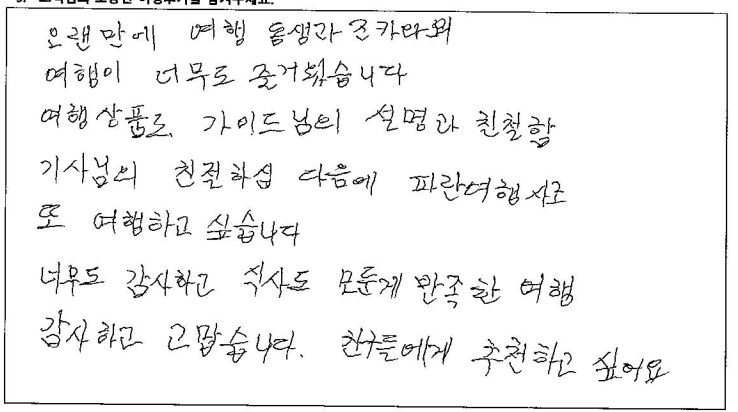 오랜만에 여행 동생과 조카라외
여행이 너무도 즐거웠습니다
여행상품도 가이드님의 설명과 친철함
기사님의 친절하심 다음에 파란여행사로
또 여행하고 싶습니다
너무도 감사하고 식사도 모둔게 만족한 여행
감사하고 고맙습니다. 친구들에게 추천하고 싶어요